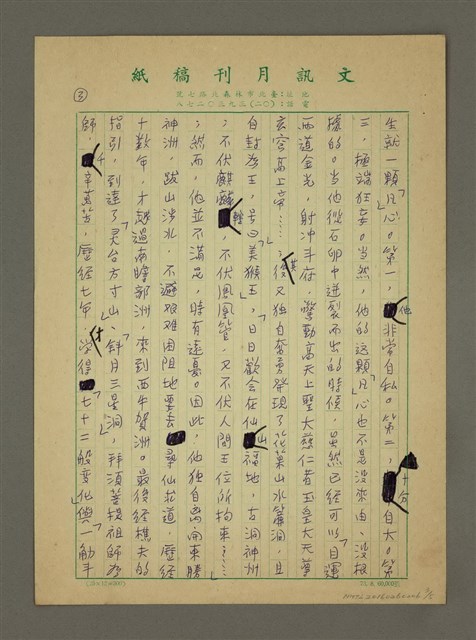 文訊月刊稿紙
③
生就一顆「凡心」。第一,他非常自私。第二,十分自大。第
三,極端狂妄。當然,他的這顆「凡心」也不是沒來由、沒根
據的。當他從石卵中迸裂而出的時候,雖然已經可以「目運
兩道金光,射冲斗府,驚動高天上聖大慈仁者玉皇大天尊
玄穹高上帝……」;其後又獨自奮勇發現了花菓山水簾洞,且
自封為王,号曰美猴王,「日日歡会在仙山福地,古洞神洲
,不伏麒麟轄,不伏鳳凰管,又不伏人間王位所拘束……」
;然而,他並不滿足,時有遠憂。因此,他獨自离開東勝
神洲,跋山涉水,不避艰难困阻地要去尋仙求道,歷經
十數年,才越過南瞻部洲,來到西牛賀洲。最後經樵夫的
指引,到達了「灵台方寸山、斜月三星洞」,拜須菩提祖師為
師,千辛萬苦,歷經七年,才学得「七十二般变化與一觔斗